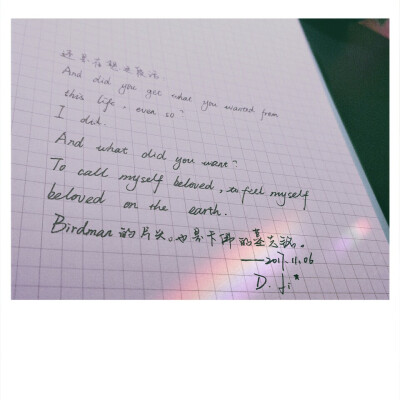 还是在想这段话
And did you get what you wanted from
this life, even so?
I did.
And what did you want?
To call myself beloved, to feel myself
beloved on the earth.
Birdman的片头。也是卡佛的墓志铭。
——2017.11.06
D. Ji